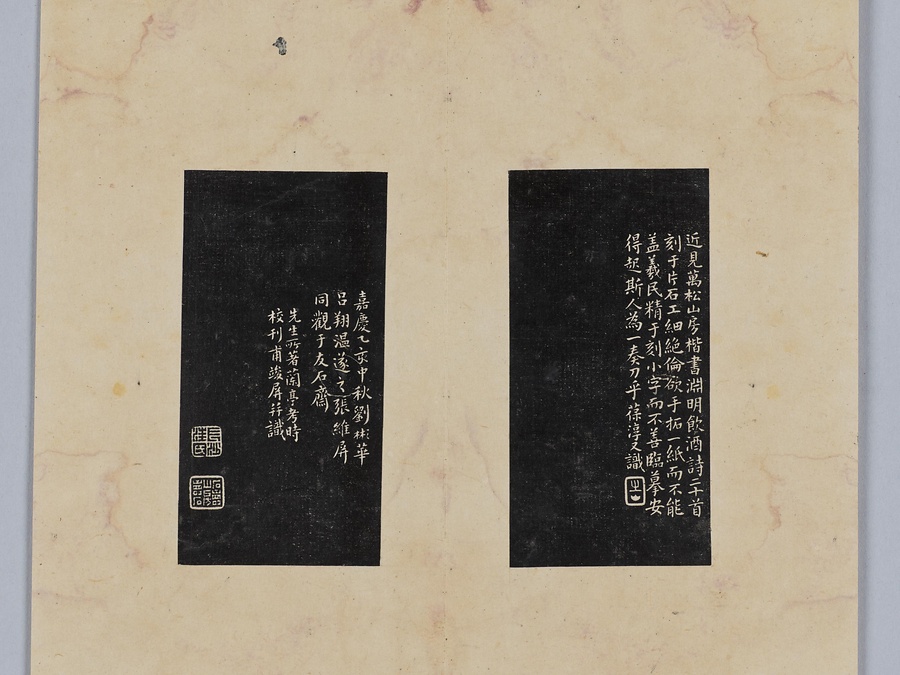 近見萬松山房楷書淵明飲酒詩二十首
刻于片石工細絶倫欲手拓一紙而不能
盖羲民精于刻小字而不善臨摹安
得起斯人為一奏刀乎葆淳又識
嘉慶乙亥中秋劉彬華
呂翔温遂之張維屏
同觀于友石齋
先生所著蘭亭考時
校刊甫竣屏并識